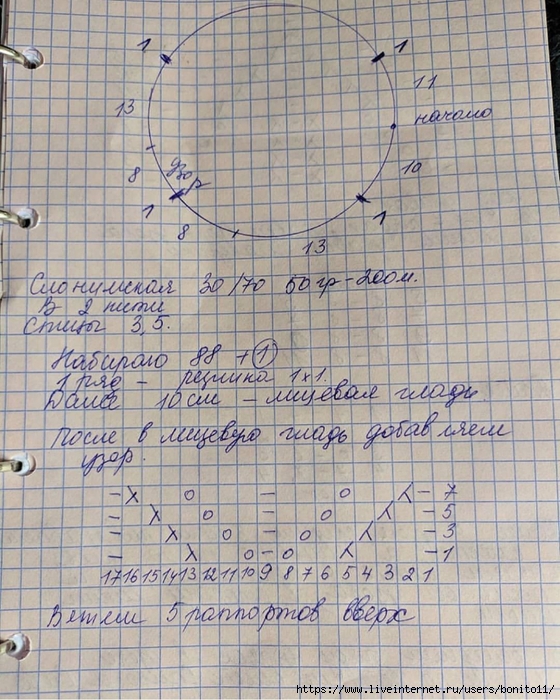 1 1
11
13 начало
8 узор 10
1 1
8
13
Слонимская 30/70 50гр-200м.
В 2 нити
Спицы 3,5.
Набираю 88 + 1
1 ряд - резинка 1х1.
Далее 10 см - лицевая гладь
После в лицевую гладь добавляем
узор.
- \ O - O / - 7
- \ O - O / - 5
- \ O - O / - 3
- \ O - O / - 1
17 16 15 14 13 12 11 10 9 8 7 6 5 4 3 2 1
Вяжем 5 раппортов вверх
https://www.liveinternet.ru/users/bonito11/